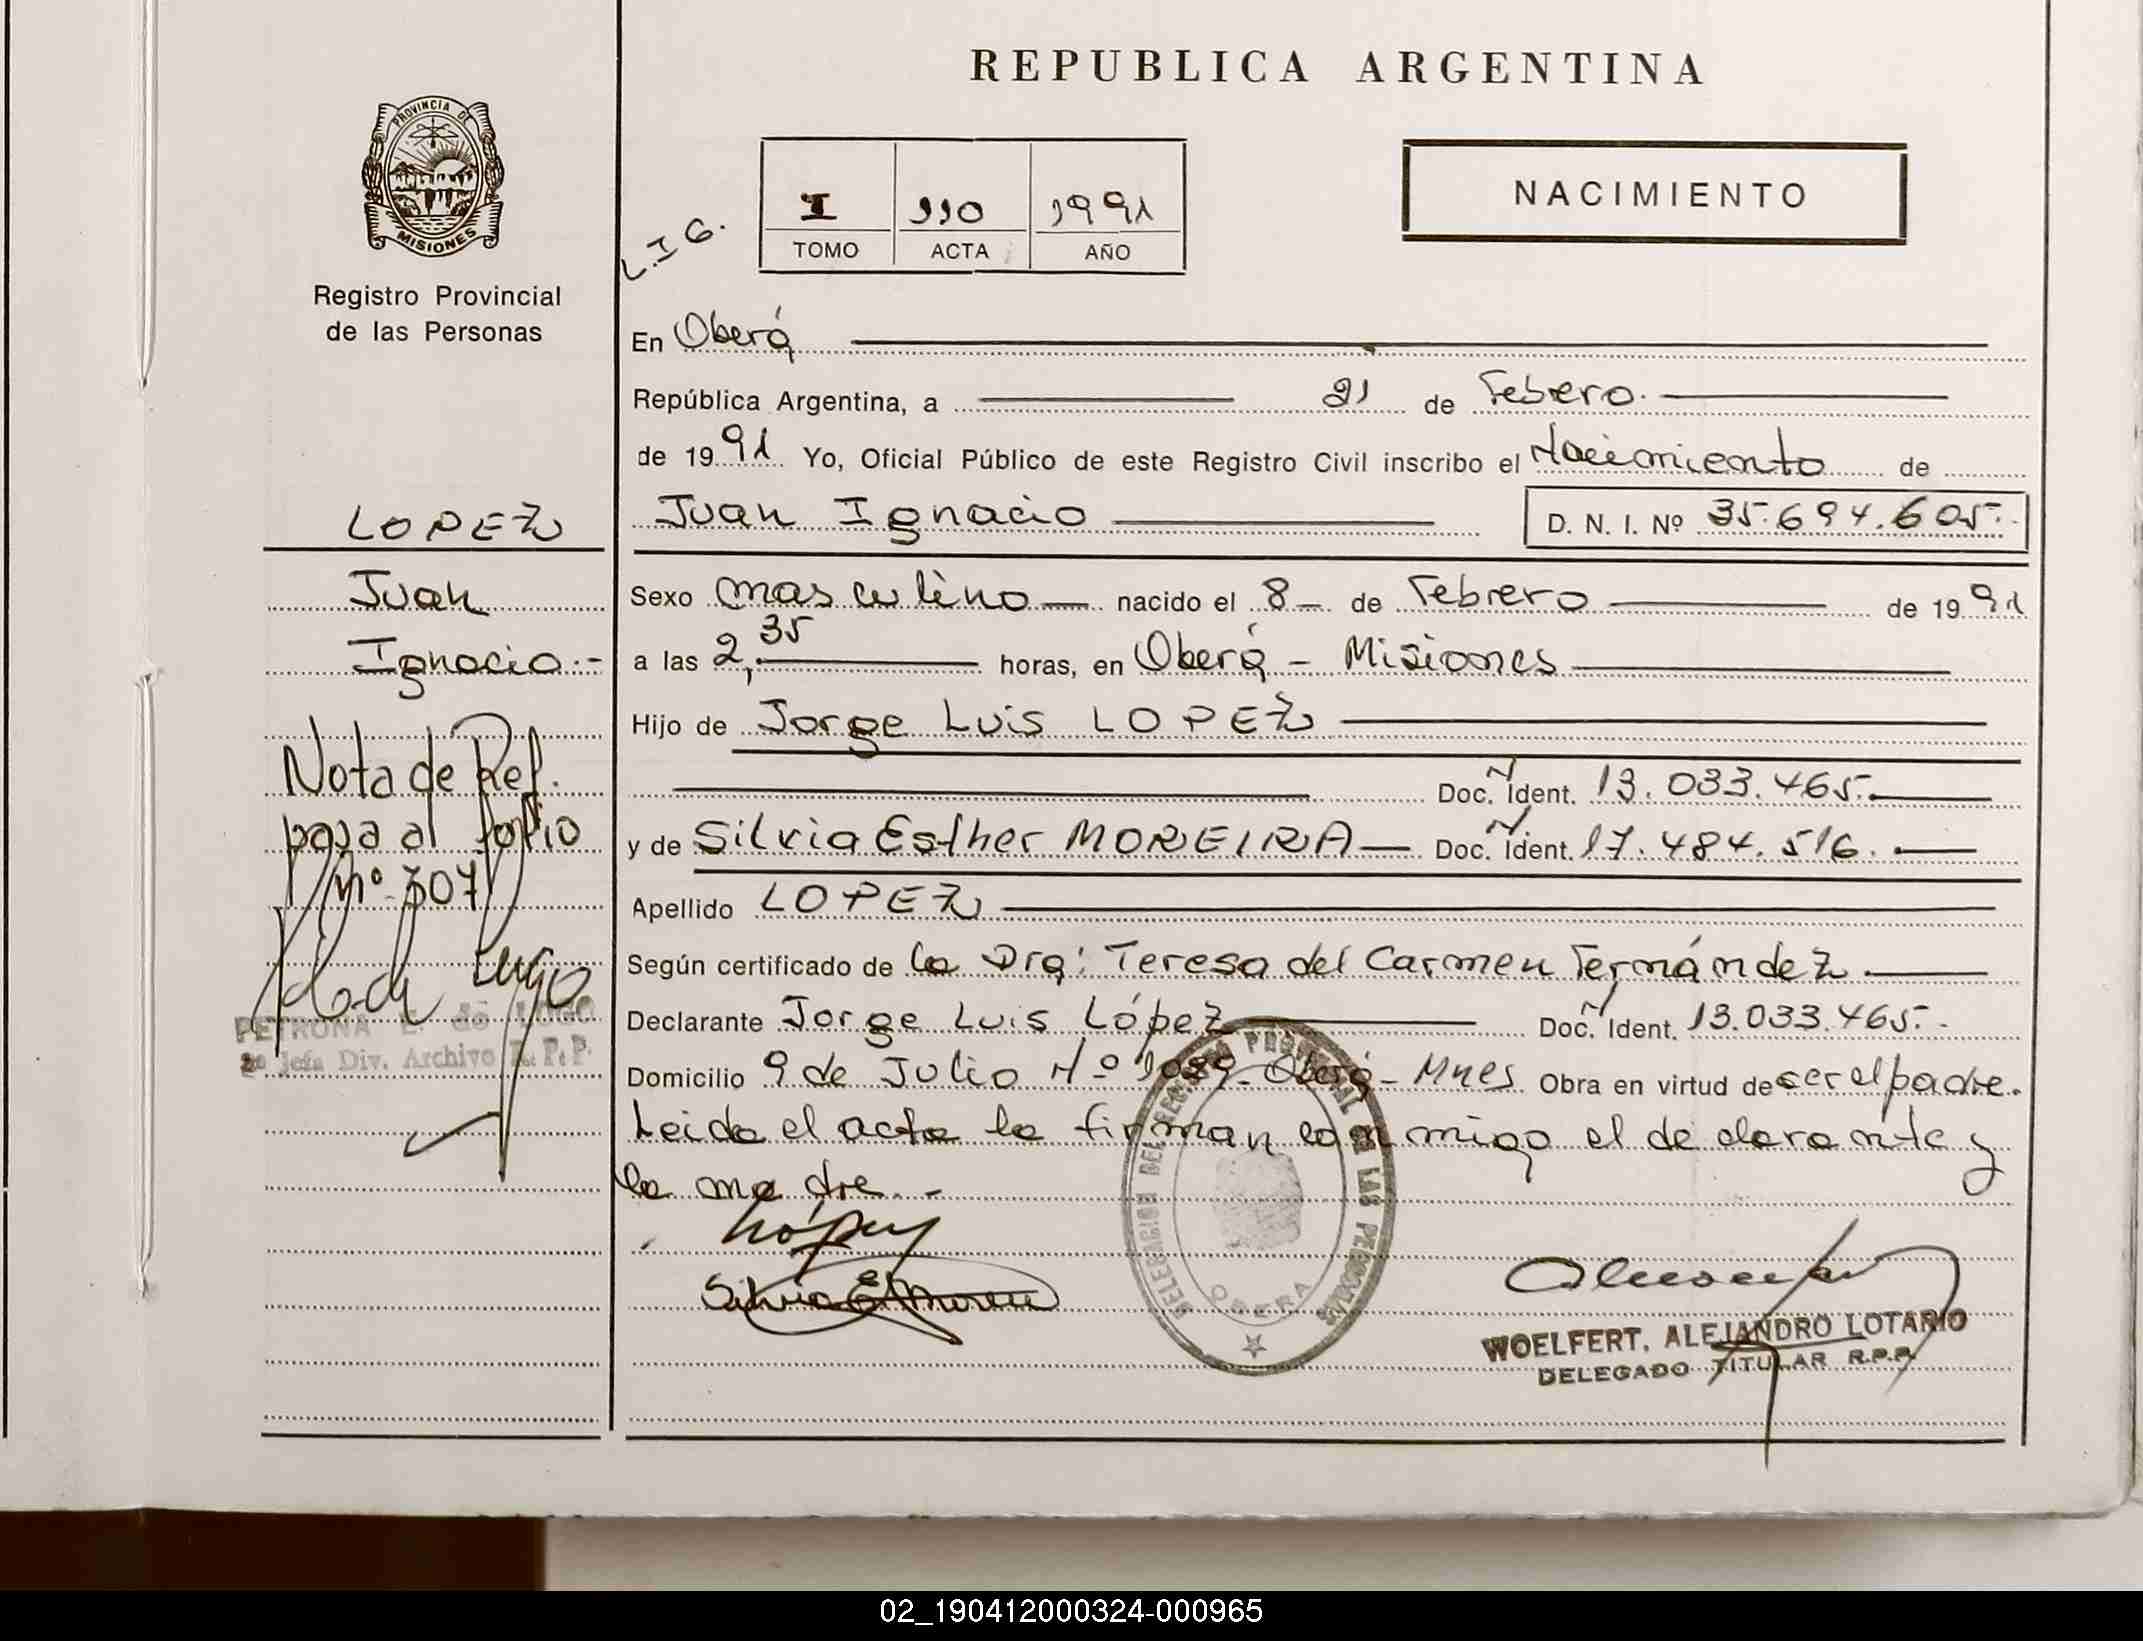 REPUBLICA ARGENTINA
PROVINCIA DE
MISIONES
Registro Provincial
de las Personas
L.I G.
I 110 1991
TOMO ACTA AÑO
NACIMIENTO
En Oberá
República Argentina, a 21 de Febrero.
de 1991 Yo, Oficial Público de este Registro Civil inscribo el Nacimiento de
Juan Ignacio D. N. I. Nº 35.694.605.
LOPEZ
Juan
Ignacio.-
Nota de Ref.
pasa al folio
Nº 307
Lugo
PETRONA E. de LUGO
2º Jefa Div. Archivo R.P.P.
Sexo masculino nacido el 8 de Febrero de 1991
a las 2,35 horas, en Oberá - Misiones
Hijo de Jorge Luis LOPEZ
Doc. N. Ident. 13.033.465.
y de Silvia Esther MOREIRA Doc. N. Ident. 17.484.516.
Apellido LOPEZ
Según certificado de la Dra: Teresa del Carmen Fernández
Declarante Jorge Luis López Doc. N. Ident. 13.033.465.-
Domicilio 9 de Julio Nº 1089- Oberá - Mnes Obra en virtud de ser el padre.
Leida el acta la firman conmigo el declarante y
la madre.-
López
Silvia E. Moreira
DELEGACION DEL REGISTRO PROVINCIAL DE LAS PERSONAS
OBERA
WOELFERT, ALEJANDRO LOTARIO
DELEGADO TITULAR R.P.P.
02_190412000324-000965